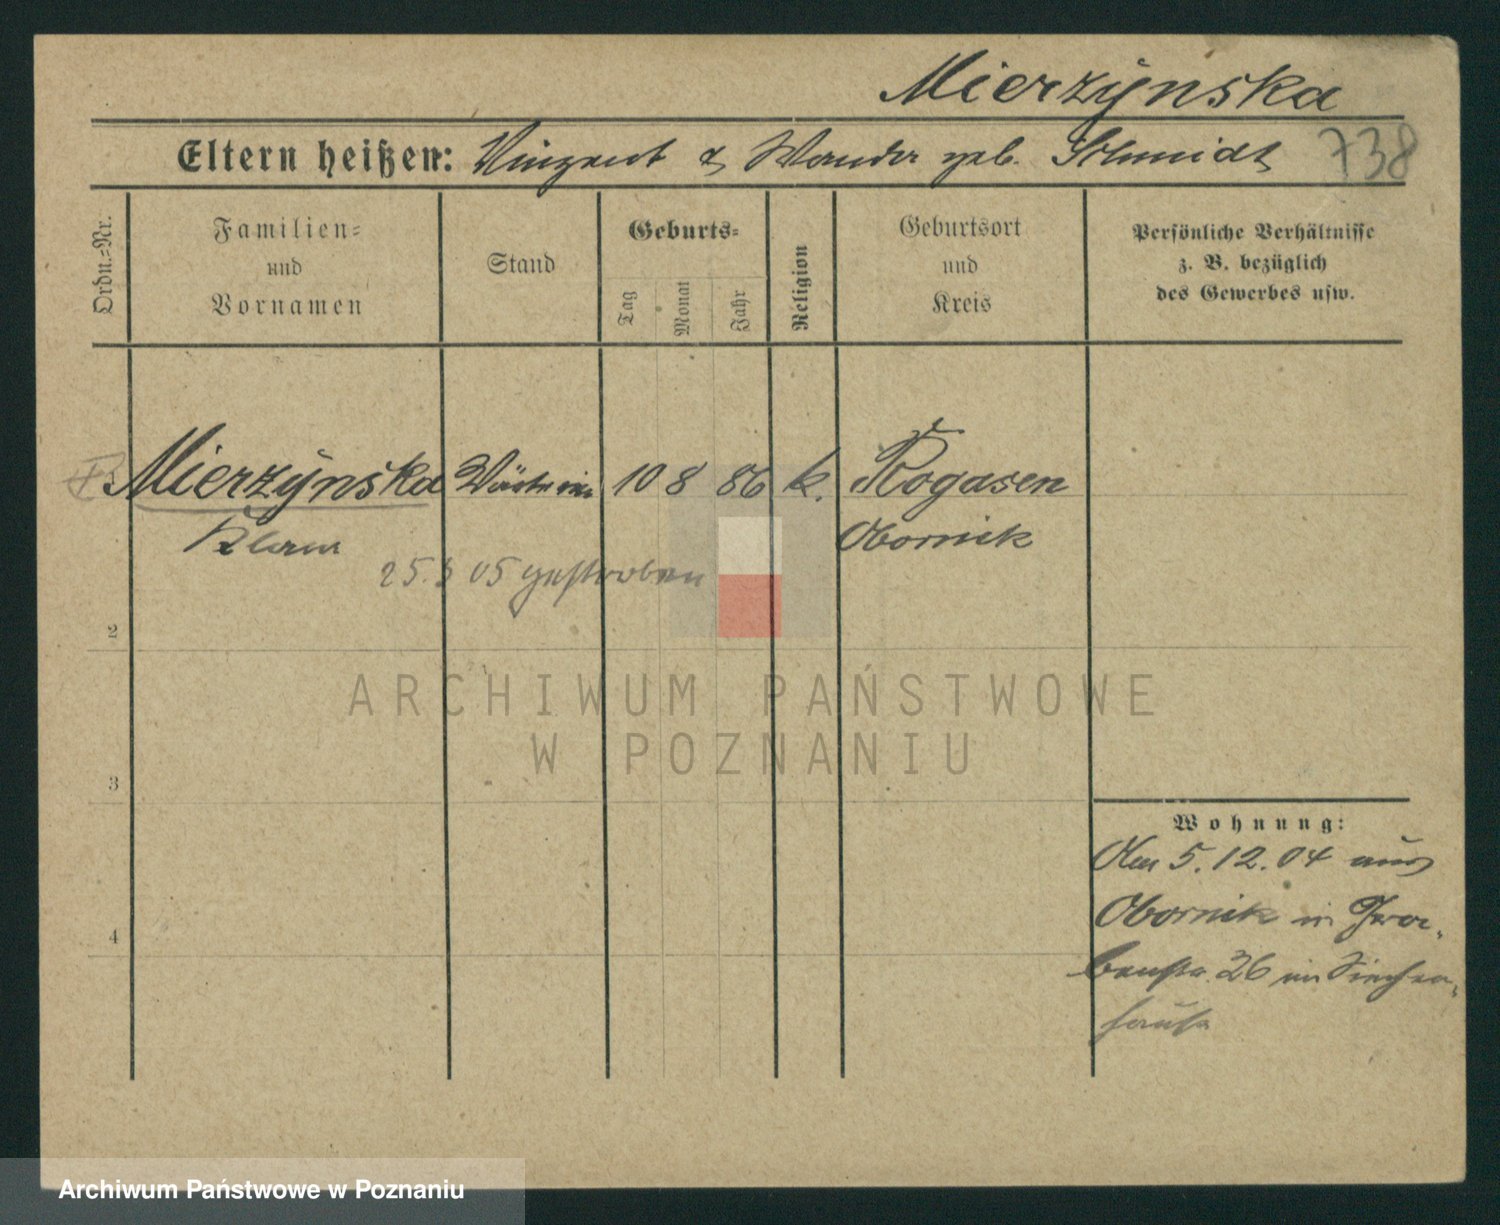 Mierzynska
Eltern heißen: Vinzent & Wanda geb. Schmidt 738
Ordn.=Nr.
Familien=
und
Vornamen
Stand
Geburts=
Tag
Monat
Jahr
Religion
Geburtsort
und
Kreis
Persönliche Verhältnisse
z. B. bezüglich
des Gewerbes usw.
Mierzynska 10 8 86 k. Rogasen
Klara Obornik
25. 05 gestorben
2
3
4
Wohnung:
Am 5.12.04 aus
Obornik in
26 im Siechen-
hause
ARCHIWUM PAŃSTWOWE
W POZNANIU
Archiwum Państwowe w Poznaniu